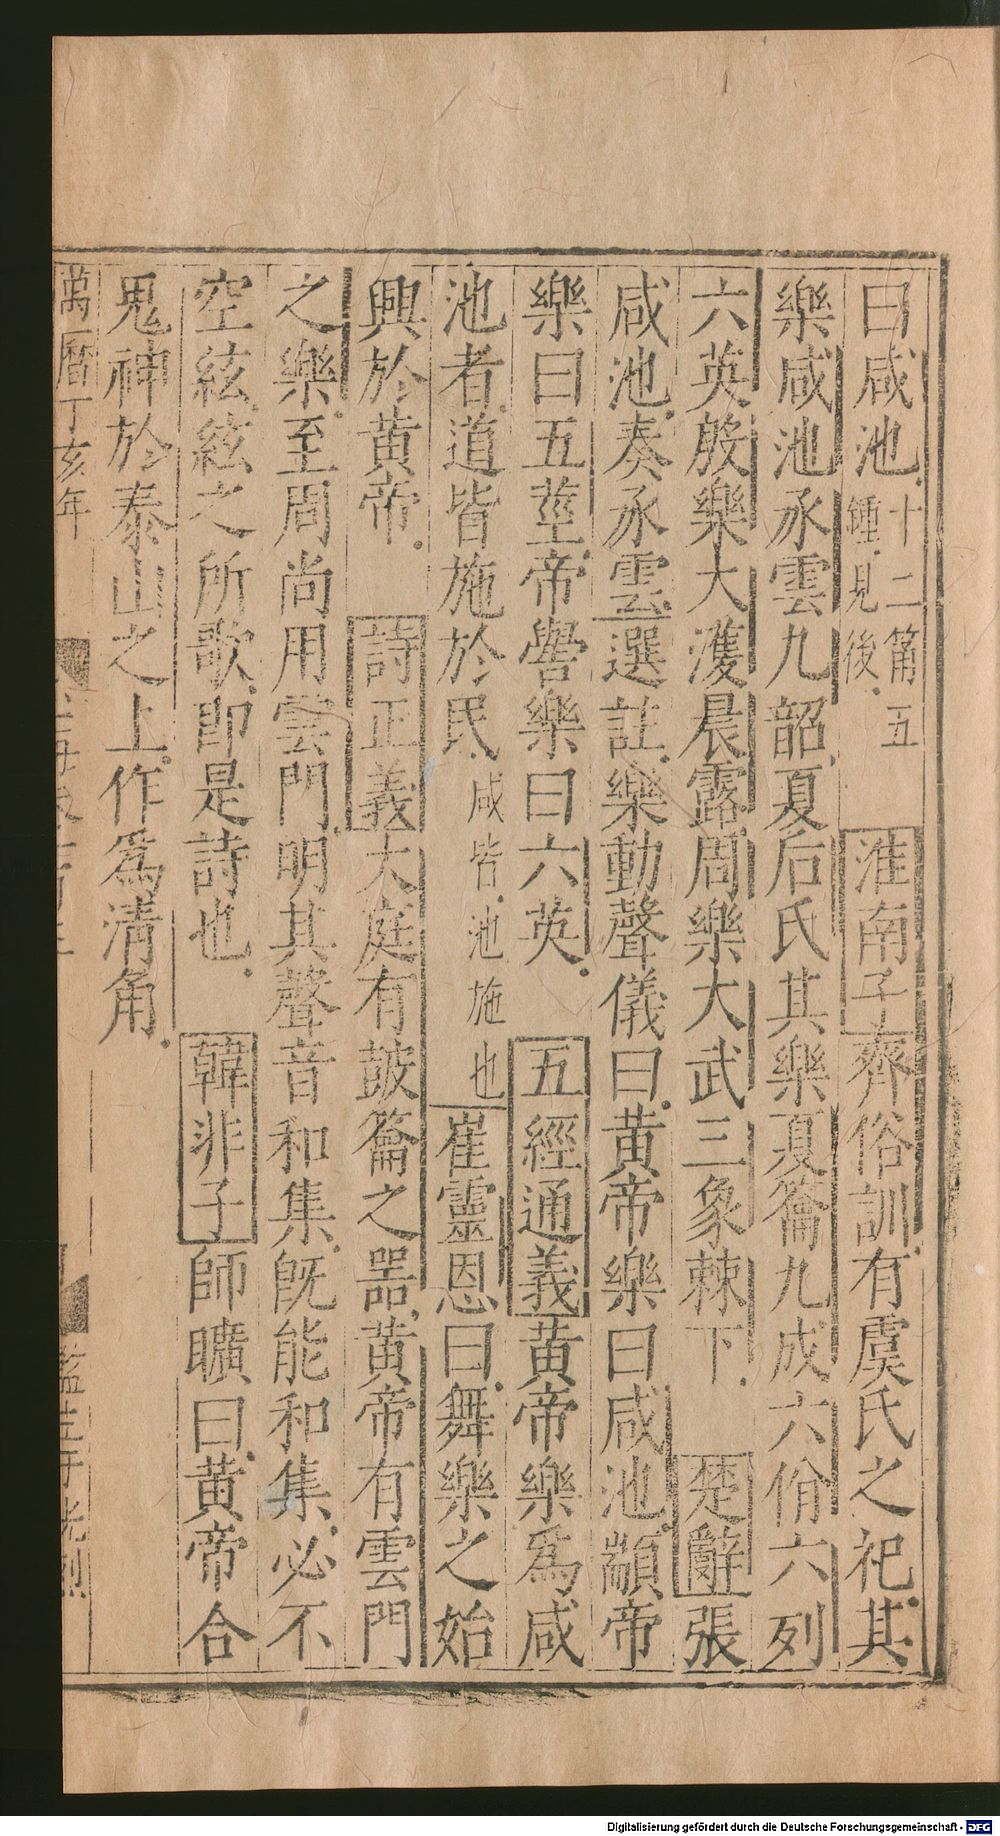 曰咸池十二筩五鍾見後淮南子齊俗訓有虞氏之祀其
樂咸池承雲九韶夏后氏其樂夏籥九成六佾六列
六英殷樂大濩晨露周樂大武三象棘下楚辭張
咸池奏承雲選註樂動聲儀曰黃帝樂曰咸池顓帝
樂曰五莖帝嚳樂曰六英五經通義黃帝樂為咸
池者道皆施於民咸皆池施也崔靈恩曰舞樂之始
興於黃帝詩正義大庭有鼓籥之器黃帝有雲門
之樂至周尚用雲門明其聲音和集既能和集必不
空絃絃之所歌即是詩也韓非子師曠曰黃帝合
鬼神於泰山之上作為清角
萬曆丁亥年
監生
Digitalisierung gefördert durch die Deutsche Forschungsgemeinschaft - DFG